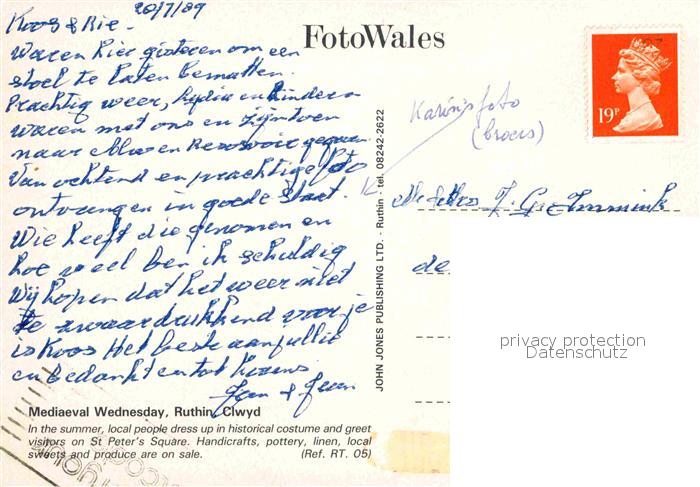 20/7/89
Koos & Rie -
Waren hier gisteren om een
stoel te laten bematten.
Prachtig weer, Lydia en kinderen
waren met ons en zijn toen
naar Alwen Reservoir gegaan
Van ochtend en prachtige foto
ontvangen in goede staat.
Wie heeft die genomen en
hoe veel ben ik schuldig
Wij hopen dat het weer niet
te zwaar drukkend voor je
is Koos Het beste aan jullie
en bedankt en tot
& Jean
FotoWales
19P
Karin's foto
(broers)
J. G. Immink
de
JOHN JONES PUBLISHING LTD. - Ruthin - tel. 08242-2622
privacy protection
Datenschutz
Mediaeval Wednesday, Ruthin, Clwyd
In the summer, local people dress up in historical costume and greet
visitors on St Peter's Square. Handicrafts, pottery, linen, local
sweets and produce are on sale. (Ref. RT. 05)